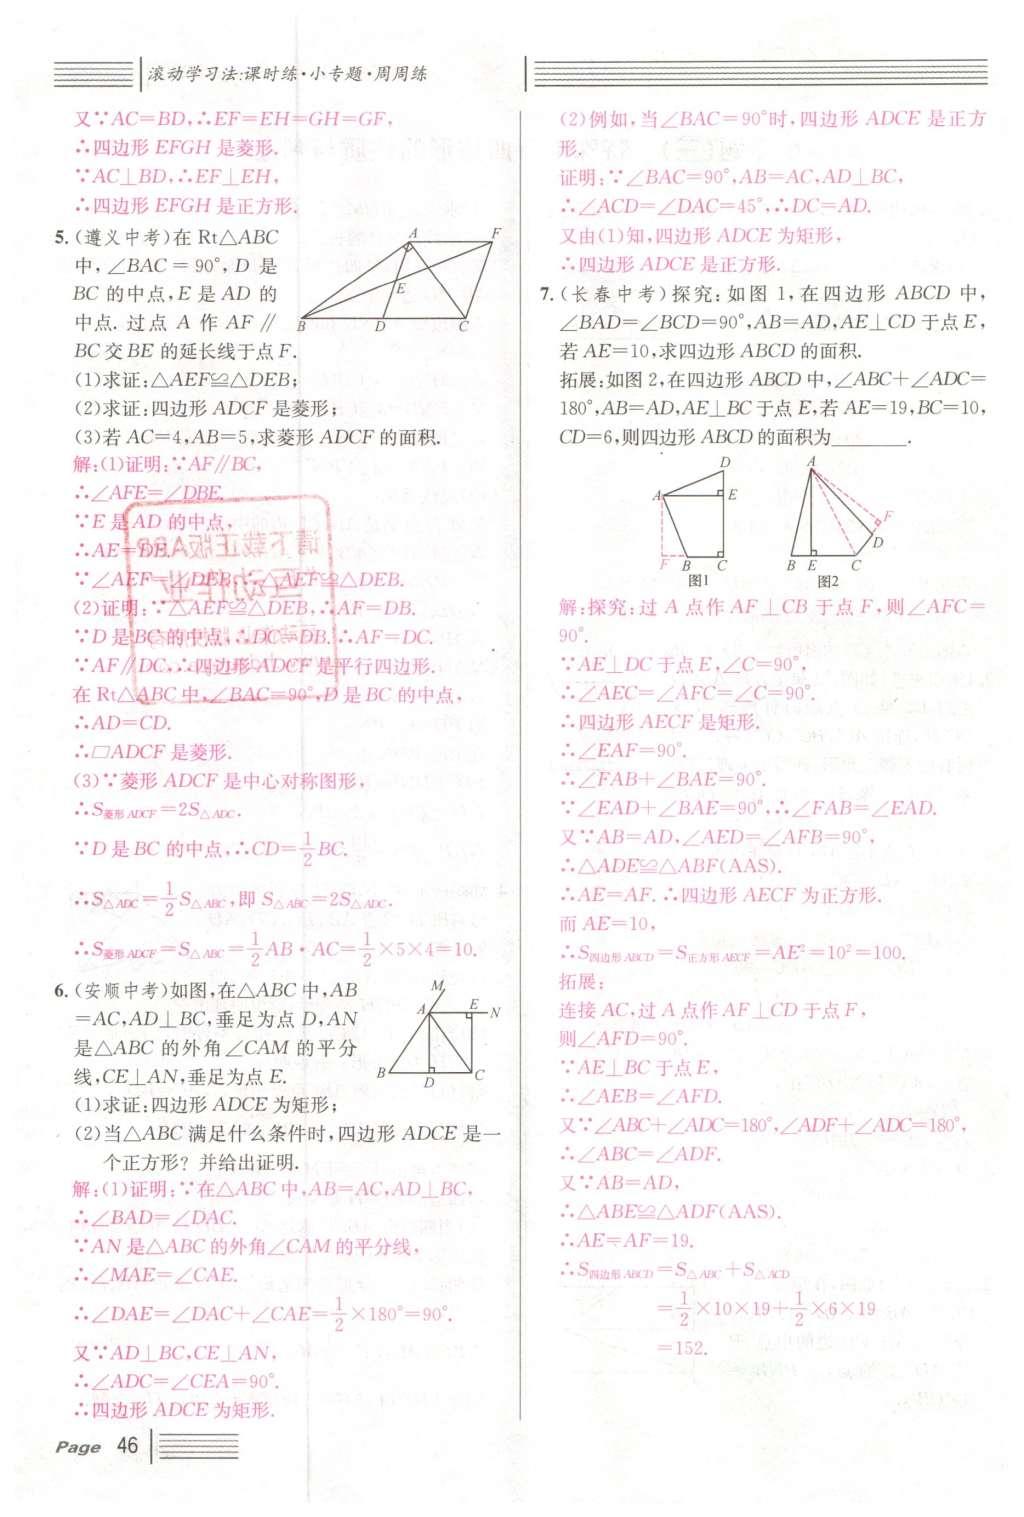 滚动学习法:课时练·小专题·周周练
又∵AC=BD,∴EF=EH=GH=GF,
∴四边形 EFGH 是菱形.
∵AC⊥BD,∴EF⊥EH,
∴四边形 EFGH 是正方形.
5.(遵义中考)在 Rt△ABC
中,∠BAC = 90°, D 是
BC 的中点,E 是 AD 的
中点. 过点 A 作 AF ∥
BC交 BE 的延长线于点 F.
(1)求证:△AEF≌△DEB;
(2)求证:四边形 ADCF 是菱形;
(3)若 AC=4,AB=5,求菱形 ADCF 的面积.
A
F
E
B
D
C
解:(1)证明:∵AF∥BC,
∴∠AFE=∠DBE.
∵E 是 AD 的中点,
∴AE=DE.
∵∠AEF=∠DEB,∴△AEF≌△DEB.
(2)证明:∵△AEF≌△DEB,∴AF=DB.
∵D 是 BC 的中点,∴DC=DB.∴AF=DC.
∵AF∥DC,∴四边形 ADCF 是平行四边形.
在 Rt△ABC 中,∠BAC=90°,D 是 BC 的中点,
∴AD=CD.
∴□ADCF 是菱形.
(3)∵菱形 ADCF 是中心对称图形,
∴S菱形 ADCF=2S△ADC.
∵D 是 BC 的中点,∴CD=1/2BC.
∴S△ADC=1/2S△ABC,即 S△ABC=2S△ADC.
∴S菱形 ADCF=S△ABC=1/2AB·AC=1/2×5×4=10.
6.(安顺中考)如图,在△ABC 中,AB
=AC,AD⊥BC,垂足为点 D,AN
是△ABC 的外角∠CAM 的平分
线,CE⊥AN,垂足为点 E.
(1)求证:四边形 ADCE 为矩形;
(2)当△ABC 满足什么条件时,四边形 ADCE 是一
个正方形? 并给出证明.
M
A
E
N
B
D
C
解:(1)证明:∵在△ABC 中,AB=AC,AD⊥BC,
∴∠BAD=∠DAC.
∵AN 是△ABC 的外角∠CAM 的平分线,
∴∠MAE=∠CAE.
∴∠DAE=∠DAC+∠CAE=1/2×180°=90°.
又∵AD⊥BC,CE⊥AN,
∴∠ADC=∠CEA=90°.
∴四边形 ADCE 为矩形.
(2)例如,当∠BAC=90°时,四边形 ADCE 是正方
形.
证明:∵∠BAC=90°,AB=AC,AD⊥BC,
∴∠ACD=∠DAC=45°,∴DC=AD.
又由(1)知,四边形 ADCE 为矩形,
∴四边形 ADCE 是正方形.
7.(长春中考)探究:如图 1,在四边形 ABCD 中,
∠BAD=∠BCD=90°,AB=AD,AE⊥CD 于点 E,
若 AE=10,求四边形 ABCD 的面积.
拓展:如图 2,在四边形 ABCD 中,∠ABC+∠ADC=
180°,AB=AD,AE⊥BC 于点 E,若 AE=19,BC=10,
CD=6,则四边形 ABCD 的面积为________.
D
A
E
F
B
C
图1
A
F
D
B
E
C
图2
解:探究:过 A 点作 AF⊥CB 于点 F,则∠AFC=
90°.
∵AE⊥DC 于点 E,∠C=90°,
∴∠AEC=∠AFC=∠C=90°.
∴四边形 AECF 是矩形.
∴∠EAF=90°.
∴∠FAB+∠BAE=90°.
∵∠EAD+∠BAE=90°,∴∠FAB=∠EAD.
又∵AB=AD,∠AED=∠AFB=90°,
∴△ADE≌△ABF(AAS).
∴AE=AF. ∴四边形 AECF 为正方形.
而 AE=10,
∴S四边形 ABCD=S正方形 AECF=AE²=10²=100.
拓展:
连接 AC,过 A 点作 AF⊥CD 于点 F,
则∠AFD=90°.
∵AE⊥BC 于点 E,
∴∠AEB=∠AFD.
又∵∠ABC+∠ADC=180°,∠ADF+∠ADC=180°,
∴∠ABC=∠ADF.
又∵AB=AD,
∴△ABE≌△ADF(AAS).
∴AE=AF=19.
∴S四边形 ABCD=S△ABC+S△ACD
=1/2×10×19+1/2×6×19
=152.
Page 46